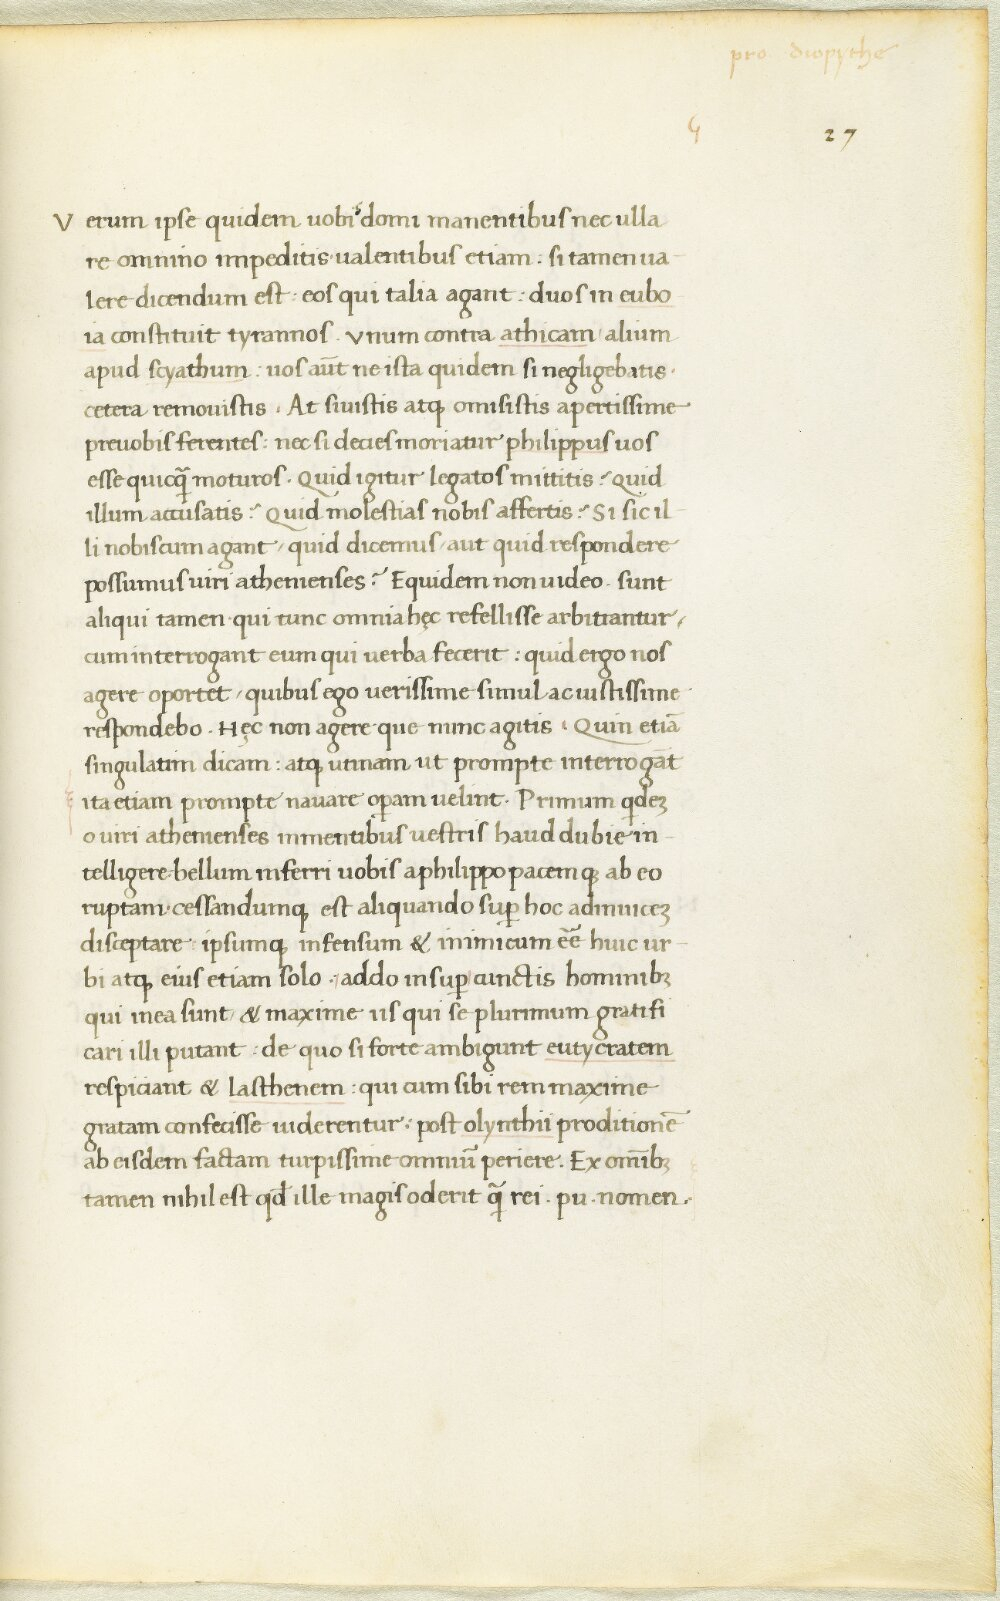 pro. diopythe
G
27
Verum ipse quidem uobis domi manentibus nec ulla
re omnino impeditis ualentibus etiam : si tamen ua-
lere dicendum est : eos qui talia agant : duos in eubo
ia constituit tyrannos . Vnum contra athicam / alium
apud scyathum : uos aūt ne ista quidem si negligebatis .
cetera remouistis . At siuistis atq; omisistis apertissime
preuobis ferentes : nec si decies moriatur philippus uos
esse quicq̃ moturos . Quid igitur legatos mittitis ? Quid
illum accusatis ? Quid molestias nobis affertis ? Si sic il-
li nobiscum agant / quid dicemus / aut quid respondere
possumus uiri athenienses ? Equidem non uideo . sunt
aliqui tamen qui tunc omnia hęc refellisse arbitrantur /
cum interrogant eum qui uerba fecerit : quid ergo nos
agere oportet / quibus ego uerissime simul ac iustissime
respondebo . Hęc non agere que nunc agitis . Quin etiā
singulatim dicam : atq; utinam ut prompte interrogāt
ita etiam prompte nauare oꝑam uelint . Primum qdeꝫ
o uiri athenienses in mentibus uestris haud dubie in-
telligere bellum inferri uobis a philippo pacemq; ab eo
ruptam cessandumq; est aliquando suꝑ hoc adinuiceꝫ
disceptare : ipsumq; infensum & inimicum eē huic ur-
bi atq; eius etiam solo . addo insuꝑ cunctis hominibꝫ
qui in ea sunt / & maxime iis qui se plurimum gratifi
cari illi putant : de quo si forte ambigunt eutycratem
respiciant & lasthenem : qui cum sibi rem maxime
gratam confecisse uiderentur : post olynthii proditionē
ab eisdem factam turpissime omniū periere . Ex omībꝫ
tamen nihil est qđ ille magis oderit q̃ rei . pu . nomen .